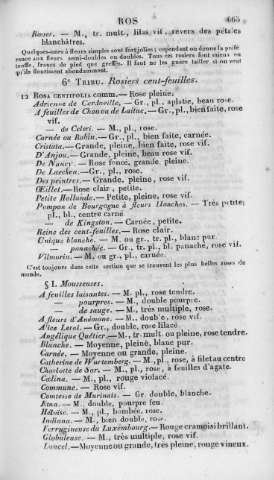 ROS
Roses. — M., tr. mult., lilas vif, revers des pétales
blanchâtres.
Quelques-unes à fleurs simples sont fort jolies; cependant on donne la préfé-
rence aux fleurs semi-doubles ou doubles. Tous ces rosiers font mieux en
touffe, francs de pied que greffés. Il faut ne les guère tailler si on veut
qu'ils fleurissent abondamment.
6e Tribu. Rosiers cent-feuilles.
12 Rosa centifolia comm. — Rose pleine.
Adrienne de Cardoville. — Gr., pl., aplatie, beau rose.
A feuilles de Chanou de Laitue. — Gr., pl., bien faite, rose
vif.
— de Céleri. — M., pl., rose.
Carnée ou Robin. — Gr., pl., bien faite, carnée.
Cristata. — Grande, pleine, bien faite, rose vif.
D'Anjou. — Grande, pleine, beau rose vif.
De Nancy. — Rose foncé, grande, pleine.
— Gr., pl., rose.
Des peintres. — Grande, pleine, rose vif.
OEillet. — Rose clair, petite.
Petite Hollande. — Petite, pleine, rose vif.
Pompon de Bourgogne à fleurs blanches. — Très petite;
pl., bl., centre carné
— de Kingston. — Carnée, petite.
Reine des cent-feuilles. — Rose clair.
Unique blanche. — M. ou gr., tr. pl., blanc pur.
— panachée. — Gr., tr. pl., bl. panaché, rose vif.
Vilmorin. — M., ou gr., pl., carnée.
C'est toujours dans cette section que se trouvent les plus belles roses du
monde.
§ I. Mousseuses.
A feuilles luisantes. — M., pl., rose tendre.
— pourpres. — M., double pourpre.
— de sauge. — M., très multiple, rose.
A fleurs d'Anémone. — M., double, rose vif.
Alice Leroi. — Gr., double, rose lilacé
Angélique Quétier. — M., tr. mult. ou pleine, rose tendre.
Blanche. — Moyenne, pleine, blanc pur.
Carnée. — Moyenne ou grande, pleine.
Catherine de Wurtemberg. — M., pl., rose, à filet au centre
Charlotte de Sor. — M., pl., rose, à feuilles d'agate.
Celina. — M., pl., rouge violacé.
Commune. — Rose vif.
Comtesse de Murinais. — Gr. double, blanche.
Etna. — M., double, pourpre feu.
Héloïse. — M., pl., bombée, rose.
Indiana. — M., bien double, rose.
Ferrugineuse du Luxembourg. — Rouge cramoisi brillant.
Globuleuse. — M., très multiple, rose vif.
Lancel. — Moyenne ou grande, très pleine, rouge vineux.